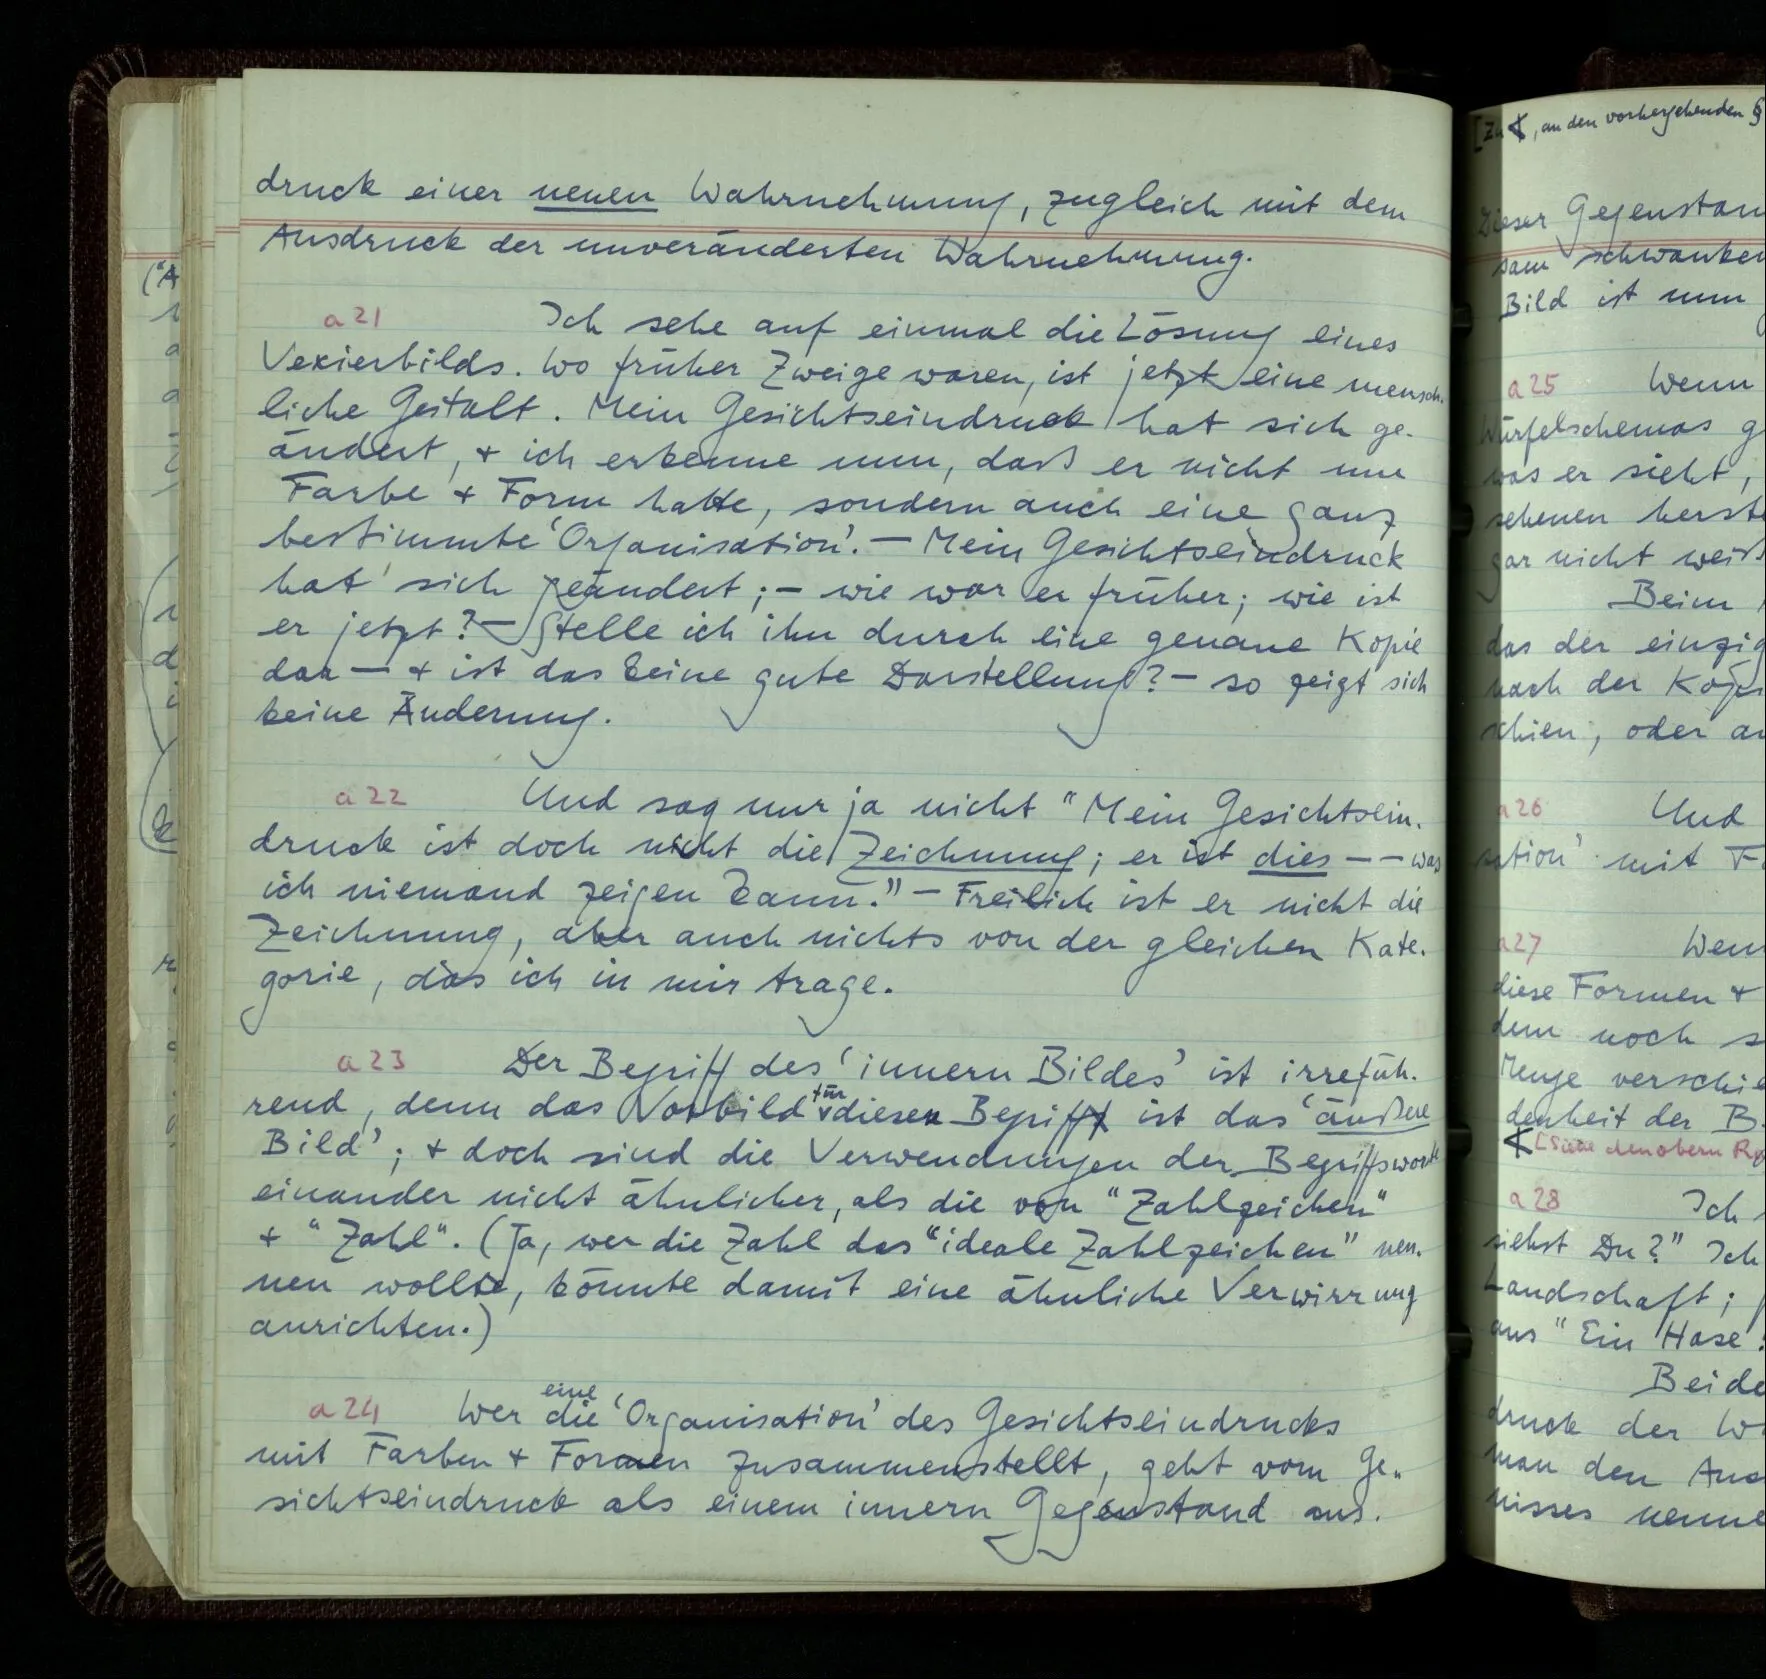 druck einer neuen Wahrnehmung, zugleich mit dem
Ausdruck der unveränderten Wahrnehmung.
a 21 Ich sehe auf einmal die Lösung eines
Vexierbilds. Wo früher Zweige waren, ist jetzt eine mensch-
liche Gestalt. Mein Gesichtseindruck hat sich ge-
ändert, + ich erkenne nun, daß er nicht nur
Farbe + Form hatte, sondern auch eine ganz
bestimmte 'Organisation'. — Mein Gesichtseindruck
hat sich geändert; — wie war er früher; wie ist
er jetzt? — Stelle ich ihn durch eine genaue Kopie
dar — + ist das keine gute Darstellung? — so zeigt sich
keine Änderung.
a 22 Und sag nur ja nicht "Mein Gesichtsein-
druck ist doch nicht die Zeichnung; er ist dies — — was
ich niemand zeigen kann." — Freilich ist er nicht die
Zeichnung, aber auch nichts von der gleichen Kate-
gorie, das ich in mir trage.
a 23 Der Begriff des 'innern Bildes' ist irrefüh-
rend, denn das Vorbild für diesen Begriff ist das 'äußere
Bild'; + doch sind die Verwendungen der Begriffsworte
einander nicht ähnlicher, als die von "Zahlzeichen"
+ "Zahl". (Ja, wer die Zahl das "ideale Zahlzeichen" nen-
nen wollte, könnte damit eine ähnliche Verwirrung
anrichten.)
eine
a 24 Wer die 'Organisation' des Gesichtseindrucks
mit Farben + Formen zusammenstellt, geht vom Ge-
sichtseindruck als einem innern Gegenstand aus.
[Zu, an den vorhergehenden §
Dieser Gegenstan
sam schwanken
Bild ist nun
a 25 Wenn
Würfelschemas g
was er sieht,
sehenen herste
gar nicht weiß
Beim
das der einzig
nach der Kopie
schien, oder an
a 26 Und
sation' mit Fa
a 27 Wenn
diese Formen +
dem noch s
Menge verschie
denheit der B
[Siehe den obern R
a 28 Ich
siehst Du?" Ich
Landschaft;
aus "Ein Hase!
Beide
druck der Wa
man den Aus
nisses nenne